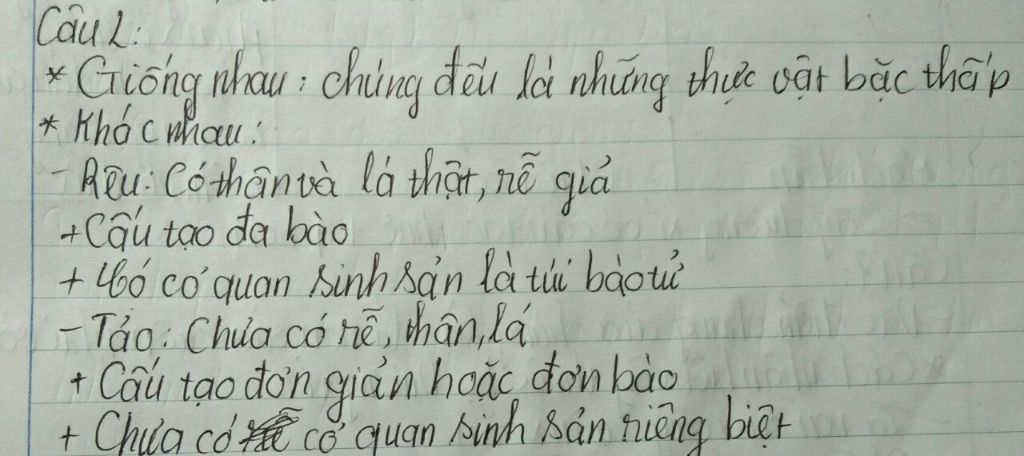 Câu 2:
* Giống nhau: chúng đều là những thực vật bậc thấp
* Khác nhau:
- Rêu: Có thân và lá thật, rễ giả
+ Cấu tạo đa bào
+ Có cơ quan sinh sản là túi bào tử
- Tảo: Chưa có rễ, thân, lá
+ Cấu tạo đơn giản hoặc đơn bào
+ Chưa có cơ quan sinh sản riêng biệt